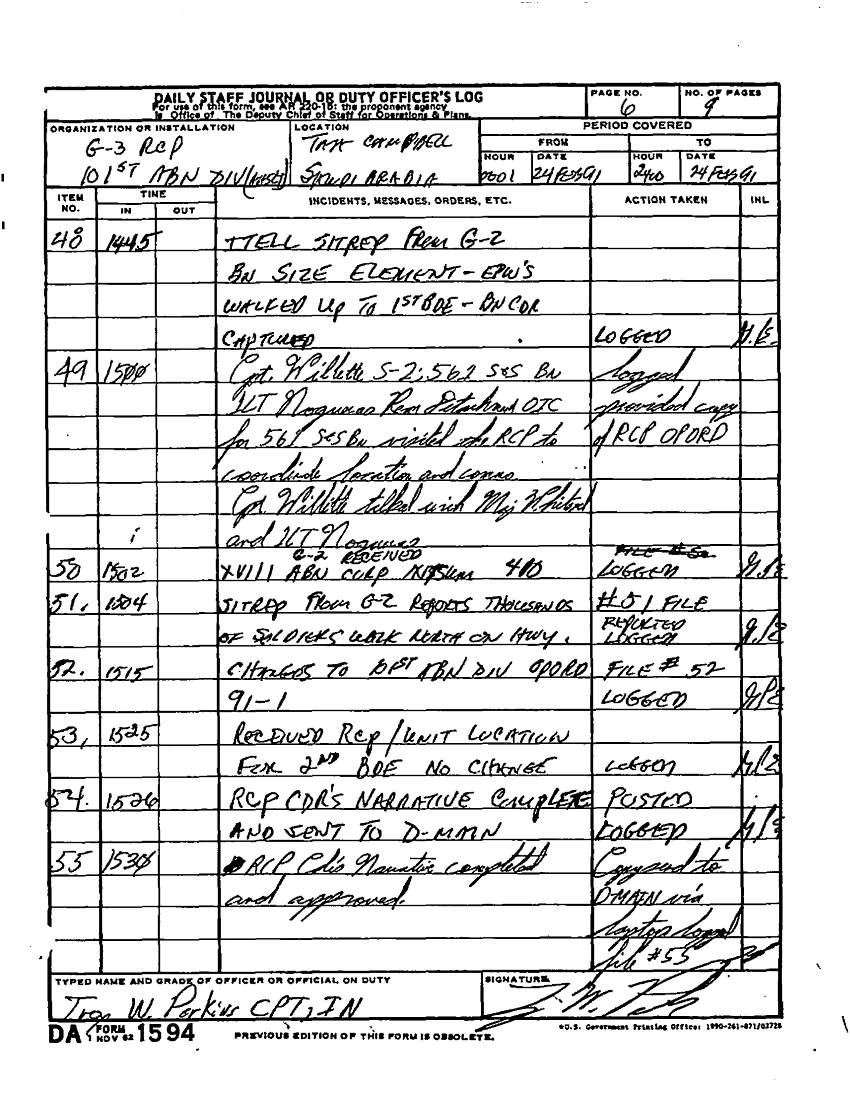 DAILY STAFF JOURNAL OR DUTY OFFICER'S LOG
For use of this form, see AR 220-15; the proponent agency
is Office of The Deputy Chief of Staff for Operations & Plans.
PAGE NO.
6
NO. OF PAGES
9
ORGANIZATION OR INSTALLATION
G-3 RCP
101ST ABN DIV (AASLT)
LOCATION
TAA CAMPBELL
SAUDI ARABIA
PERIOD COVERED
FROM
TO
HOUR
0001
DATE
24 FEB 91
HOUR
2400
DATE
24 FEB 91
ITEM NO.
TIME
IN
OUT
INCIDENTS, MESSAGES, ORDERS, ETC.
ACTION TAKEN
INL
48 1445 SITREP From G-2
BN SIZE ELEMENT - EPW'S
WALKED UP TO 1ST BDE - BN CDR
CAPTURED LOGGED
49 1500 Cpt. Willette S-2; 561 S&S Bn logged
1LT Nogueras Rem Detachment OIC provided copy
for 561 S&S Bn visited the RCP to of RCP OPORD
coordinate location and commo.
Cpt Willette talked with Maj
and 1LT Nogueras
G-2 RECEIVED FILE # 50
50 1502 XVIII ABN CORP INTSUM 40 LOGGED
51. 1504 SITREP From G-2 REPORTS THOUSANDS #51 FILE
REPORTED
OF SOLDIERS WALK NORTH ON HWY. LOGGED
52. 1515 CHANGES TO 101ST ABN DIV OPORD FILE # 52
91-1 LOGGED
53, 1525 RECEIVED RCP/UNIT LOCATION
FOR 2ND BDE NO CHANGE LOGGED
54. 1526 RCP CDR'S NARRATIVE COMPLETE POSTED
AND SENT TO D-MAIN LOGGED
55 1530 RCP Cdr's Narrative completed Copy send to
and approved. DMAIN via
laptop logged
file #55
TYPED NAME AND GRADE OF OFFICER OR OFFICIAL ON DUTY
W. Perkins CPT, IN
SIGNATURE
DA FORM 1594
1 NOV 62
PREVIOUS EDITION OF THIS FORM IS OBSOLETE.
*U.S. Government Printing Office: 1990-261-871/02728